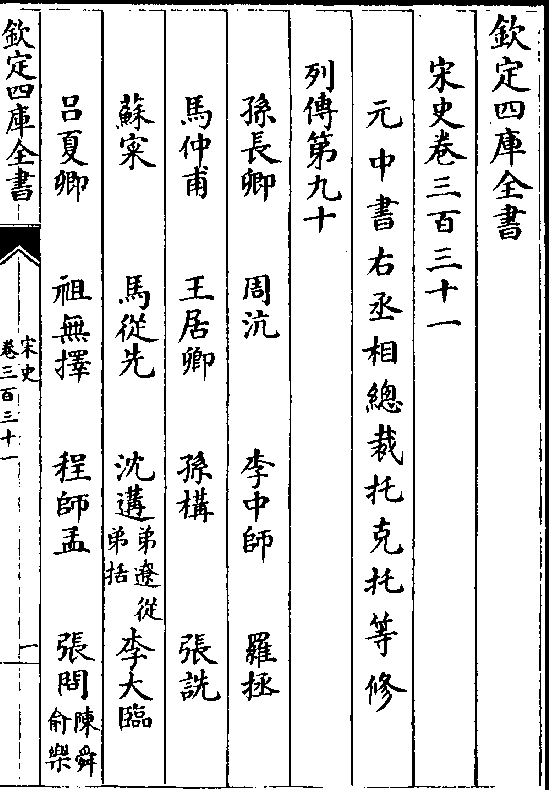 欽定四庫全書
宋史卷三百三十一
元中書右丞相總裁托克托等修
列傳第九十
孫長卿 周沆 李中師 羅拯
馬仲甫 王居卿 孫構 張詵
蘇寀 馬從先 沈遘 弟遼從弟括 李大臨
呂夏卿 祖無擇 程師孟 張問 陳舜俞樂
欽定四庫全書
宋史
卷三百三十一
一